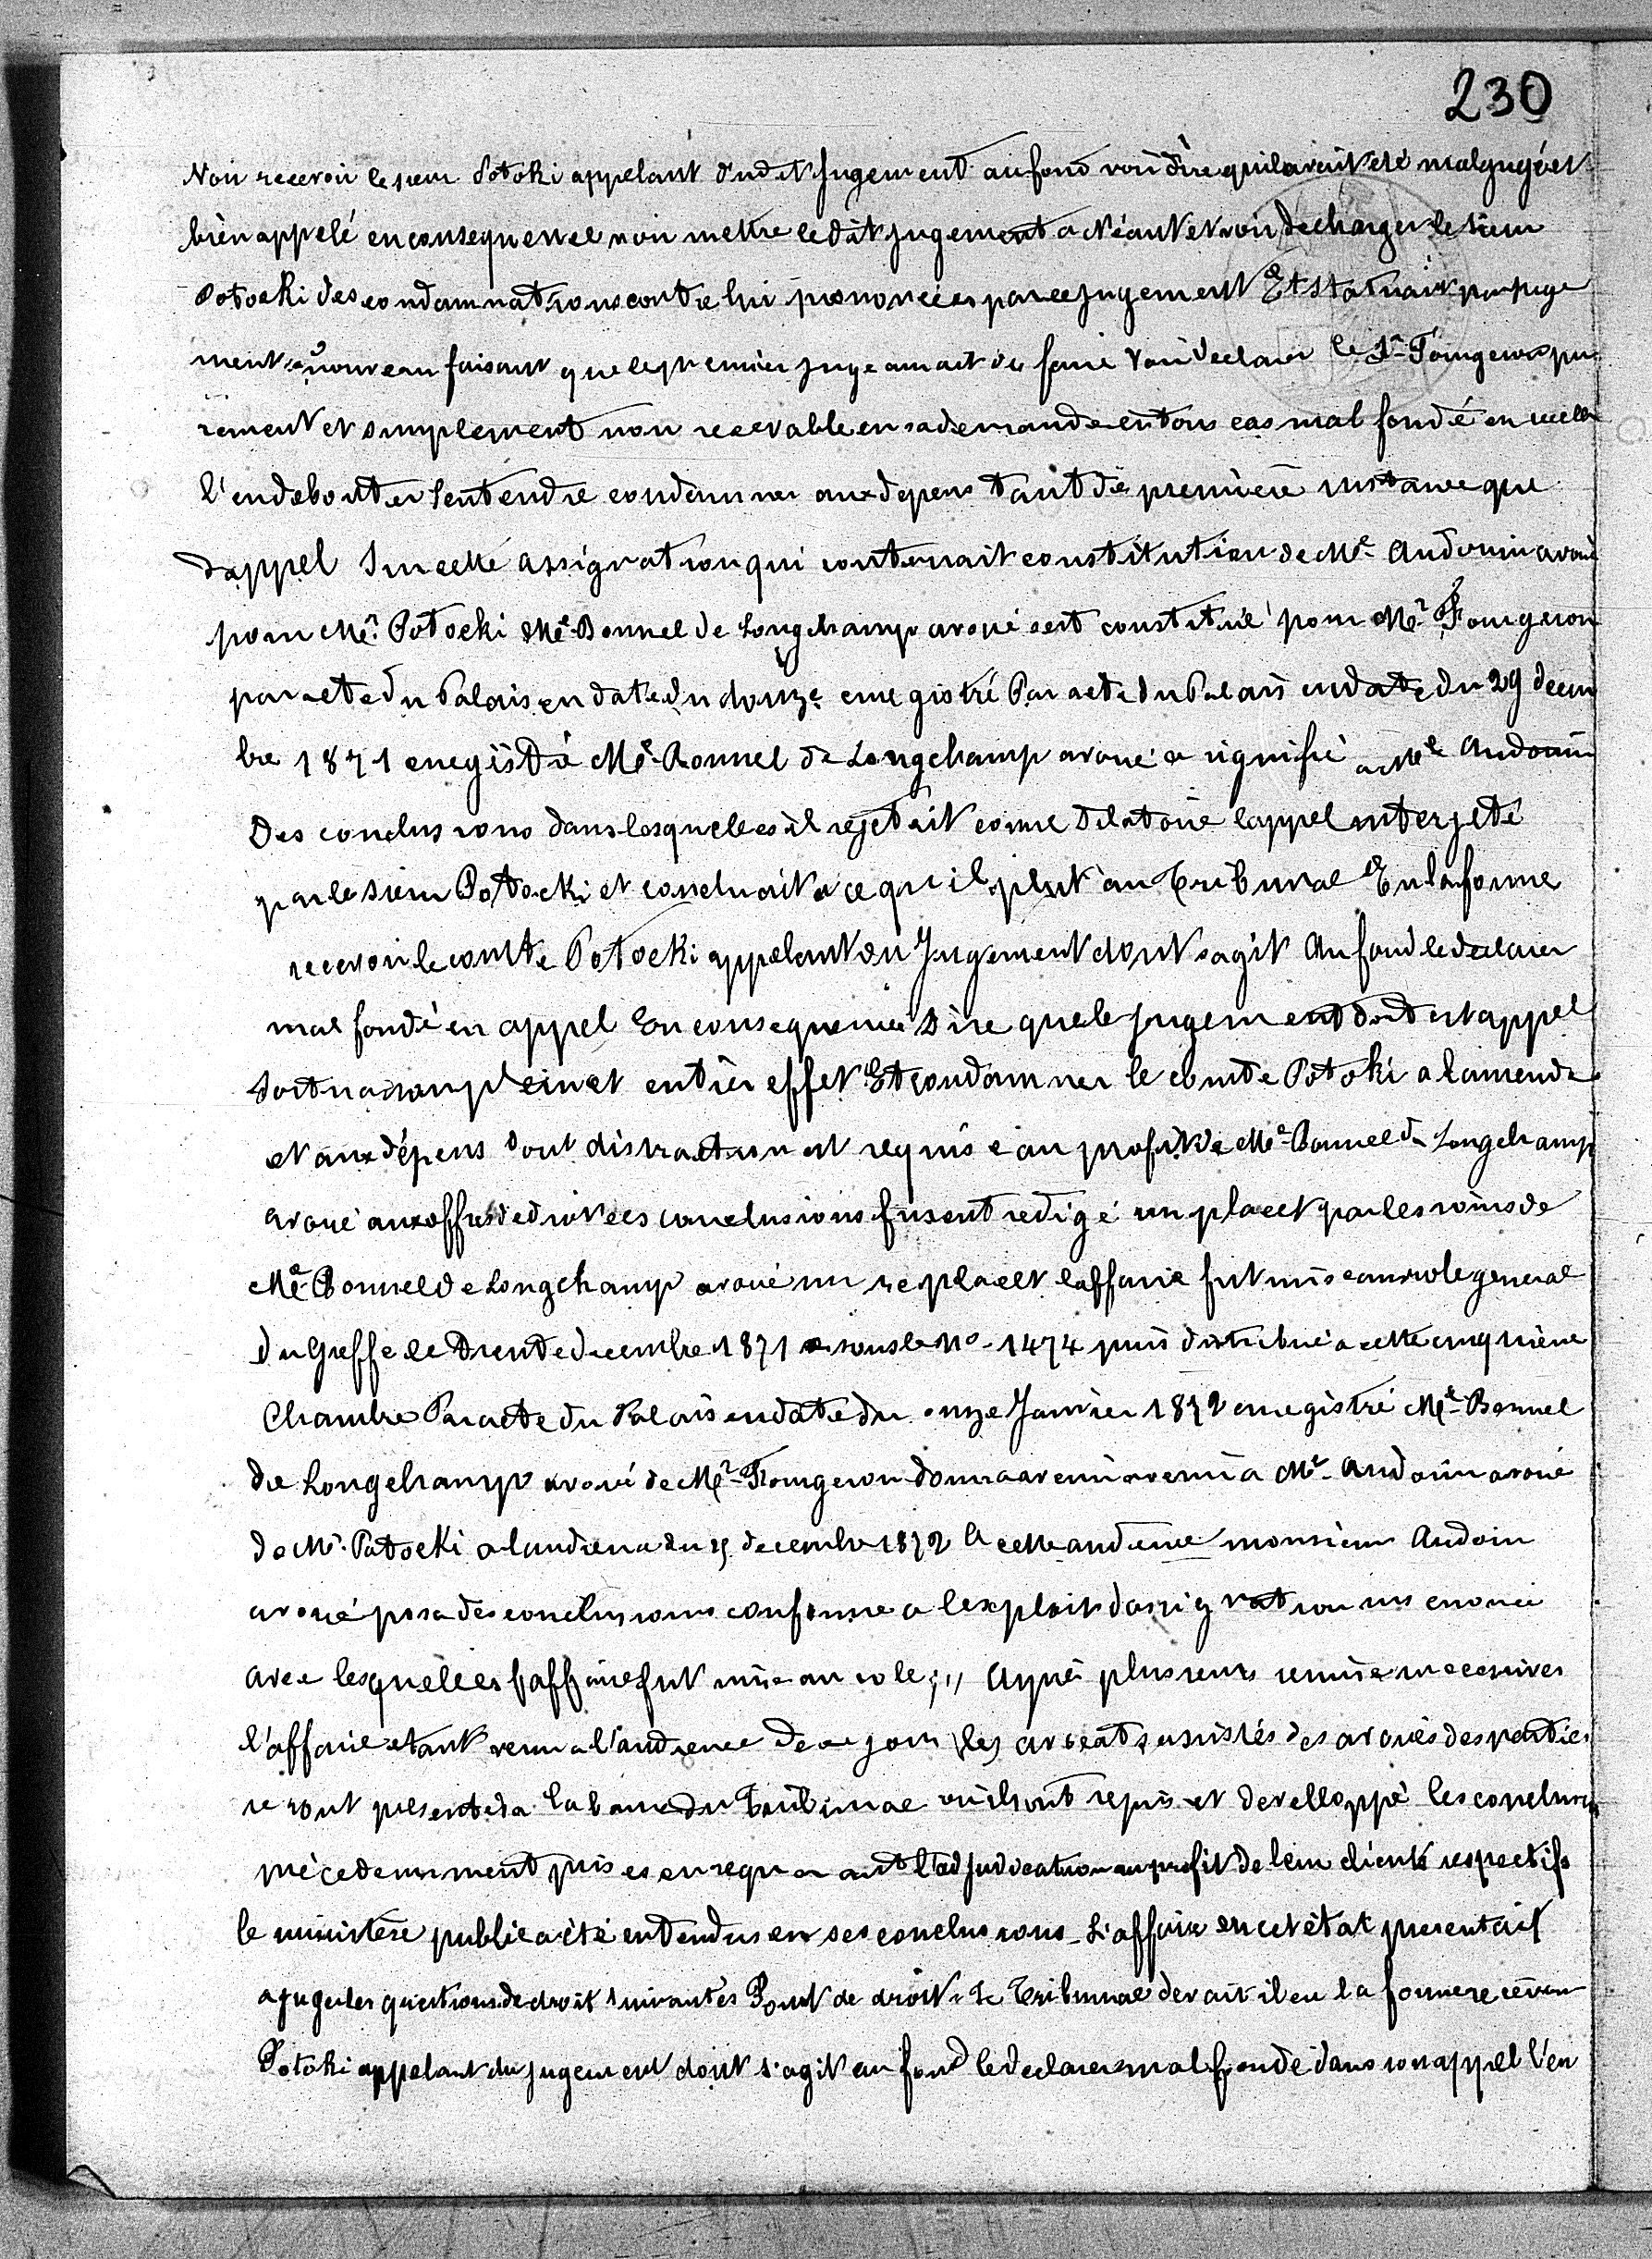 230
Voir recevoir le sieur Potoki appelant dudit Jugement au fond voir dire quil avait été mal jugé et
bien appelé en consequence voir mettre ledit jugement a Néant et voir decharger le sieur
Potocki des condamnations contre lui prononcées par ce jugement Et statuant par juge
ment nouveau faisant que le premier juge aurait du faire Voir declarer le Sr Fougeron pu
rement et simplement non recevable en sa demande en tous cas mal fondé en icelle
l'en debouter s'entendre condamner aux depens tant de première instance que
d'appel Sur cette assignation qui contenait constitution de Me Audouin avoué
pour Mr Potocki Me Bonnel de Longchamp avoué sest constitué pour Mr Fougeron
par acte du Palais en date du douze enregistré Par acte du Palais en date du 29 decem
bre 1871 enregistré Me Bonnel de Longchamp avoué a signifié a Me Audouin
Des conclusions dans lesquelles il rejetait comme dilatoire lappel interjeté
par le sieur Potocki et concluait a ce qu'il plut au Tribunal En la forme
recevoir le comte Potocki appelant du Jugement dont sagit Au fond le declarer
mal fondé en appel En consequence Dire que le jugement dont est appel
sortira son plein et entier effet Et condamner le comte Potoki a lamende
et aux dépens dont distraction est requise au profit de Me Bonnel de Longchamp
avoué aux offres de droit ces conclusions fusent redigé un placet par les soins de
Me Bonnel de Longchamp avoué sur ce placet laffaire fut mise au role general
du Greffe le Trente decembre 1871 sous le No 1474 puis distribué a cette cinquième
Chambre Par acte du Palais en date du onze Janvier 1872 enregistré Me Bonnel
de Longchamp avoué de Mr Fougeron donna avenir a Me Audouin avoué
de Mr Potocki a laudience du decembre 1872 A cette audience monsieur Audoin
avoué posa des conclusions conforme a lexploit dassignation sus enoncé
avec lesquelles l'affaire fut mise au role ;,, Après plusieurs remise successives
l'affaire etant venu a l'audience de ce jour les avocats assistés des avoués des parties
se sont presentéda la barre du Tribunal ou ils ont repris et develloppé les conclusions
précedemment prises en requerant l'adjudication au profit de leur clients respectifs
le ministère public a été entendus en ses conclusions - L'affaire en cet état presentait
a juger les questions de droit suivantes Point de droit - Le Tribunal devait il en la forme recevoir
Potoki appelant du jugement dont s'agit au fond le declarer mal fondé dans son appel l'en